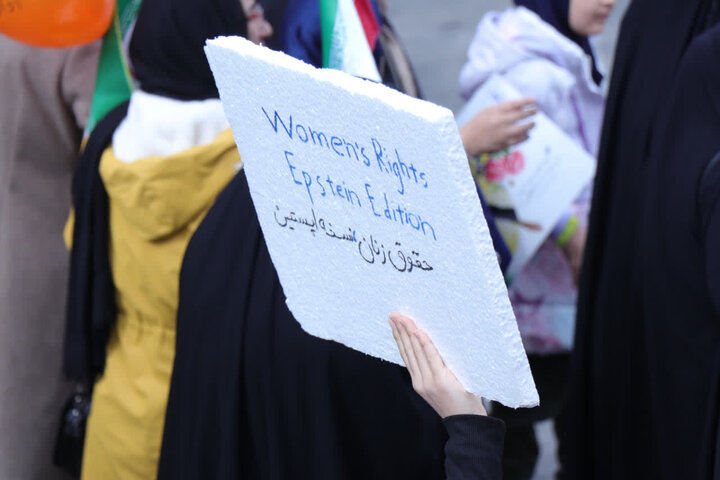 Women's Rights
Epstein Edition
حقوق زنان نسخه اپستین